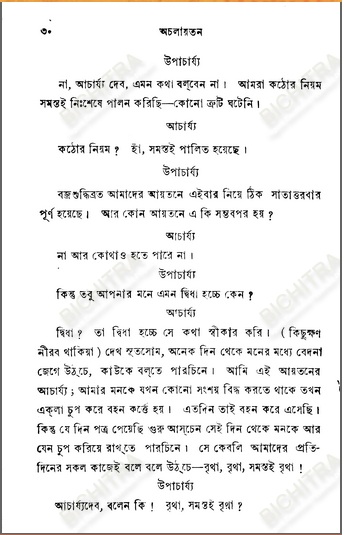 ৩০
অচলায়তন
উপাচার্য্য
না, আচার্য্য দেব, এমন কথা বল্‌বেন না। আমরা কঠোর নিয়ম
সমস্তই নিঃশেষে পালন করিছি—কোনো ত্রুটি ঘটেনি।
আচার্য্য
কঠোর নিয়ম? হাঁ, সমস্তই পালিত হয়েছে।
উপাচার্য্য
বজ্রশুদ্ধিব্রত আমাদের আয়তনে এইবার নিয়ে ঠিক সাতাত্তরবার
পূর্ণ হয়েছে। আর কোন আয়তনে এ কি সম্ভবপর হয়?
আচার্য্য
না আর কোথাও হতে পারে না।
উপাচার্য্য
কিন্তু তবু আপনার মনে এমন দ্বিধা হচ্চে কেন?
আচার্য্য
দ্বিধা? তা দ্বিধা হচ্চে সে কথা স্বীকার করি। (কিছুক্ষণ
নীরব থাকিয়া) দেখ সূতসোম, অনেক দিন থেকে মনের মধ্যে বেদনা
জেগে উঠ্‌চে, কাউকে বল্‌তে পারচিনে। আমি এই আয়তনের
আচার্য্য; আমার মনকে যখন কোনো সংশয় বিদ্ধ করতে থাকে তখন
একলা চুপ করে বহন কর্ত্তে হয়। এতদিন তাই বহন করে এসেছি।
কিন্তু যে দিন পত্র পেয়েছি গুরু আস্‌চেন সেই দিন থেকে মনকে আর
যেন চুপ করিয়ে রাখ্‌তে পারচিনে। সে কেবলি আমাদের প্রতি-
দিনের সকল কাজেই বলে বলে উঠ্‌চে—বৃথা, বৃথা, সমস্তই বৃথা!
উপাচার্য্য
আচার্য্যদেব, বলেন কি! বৃথা, সমস্তই বৃথা?
BICHITRA